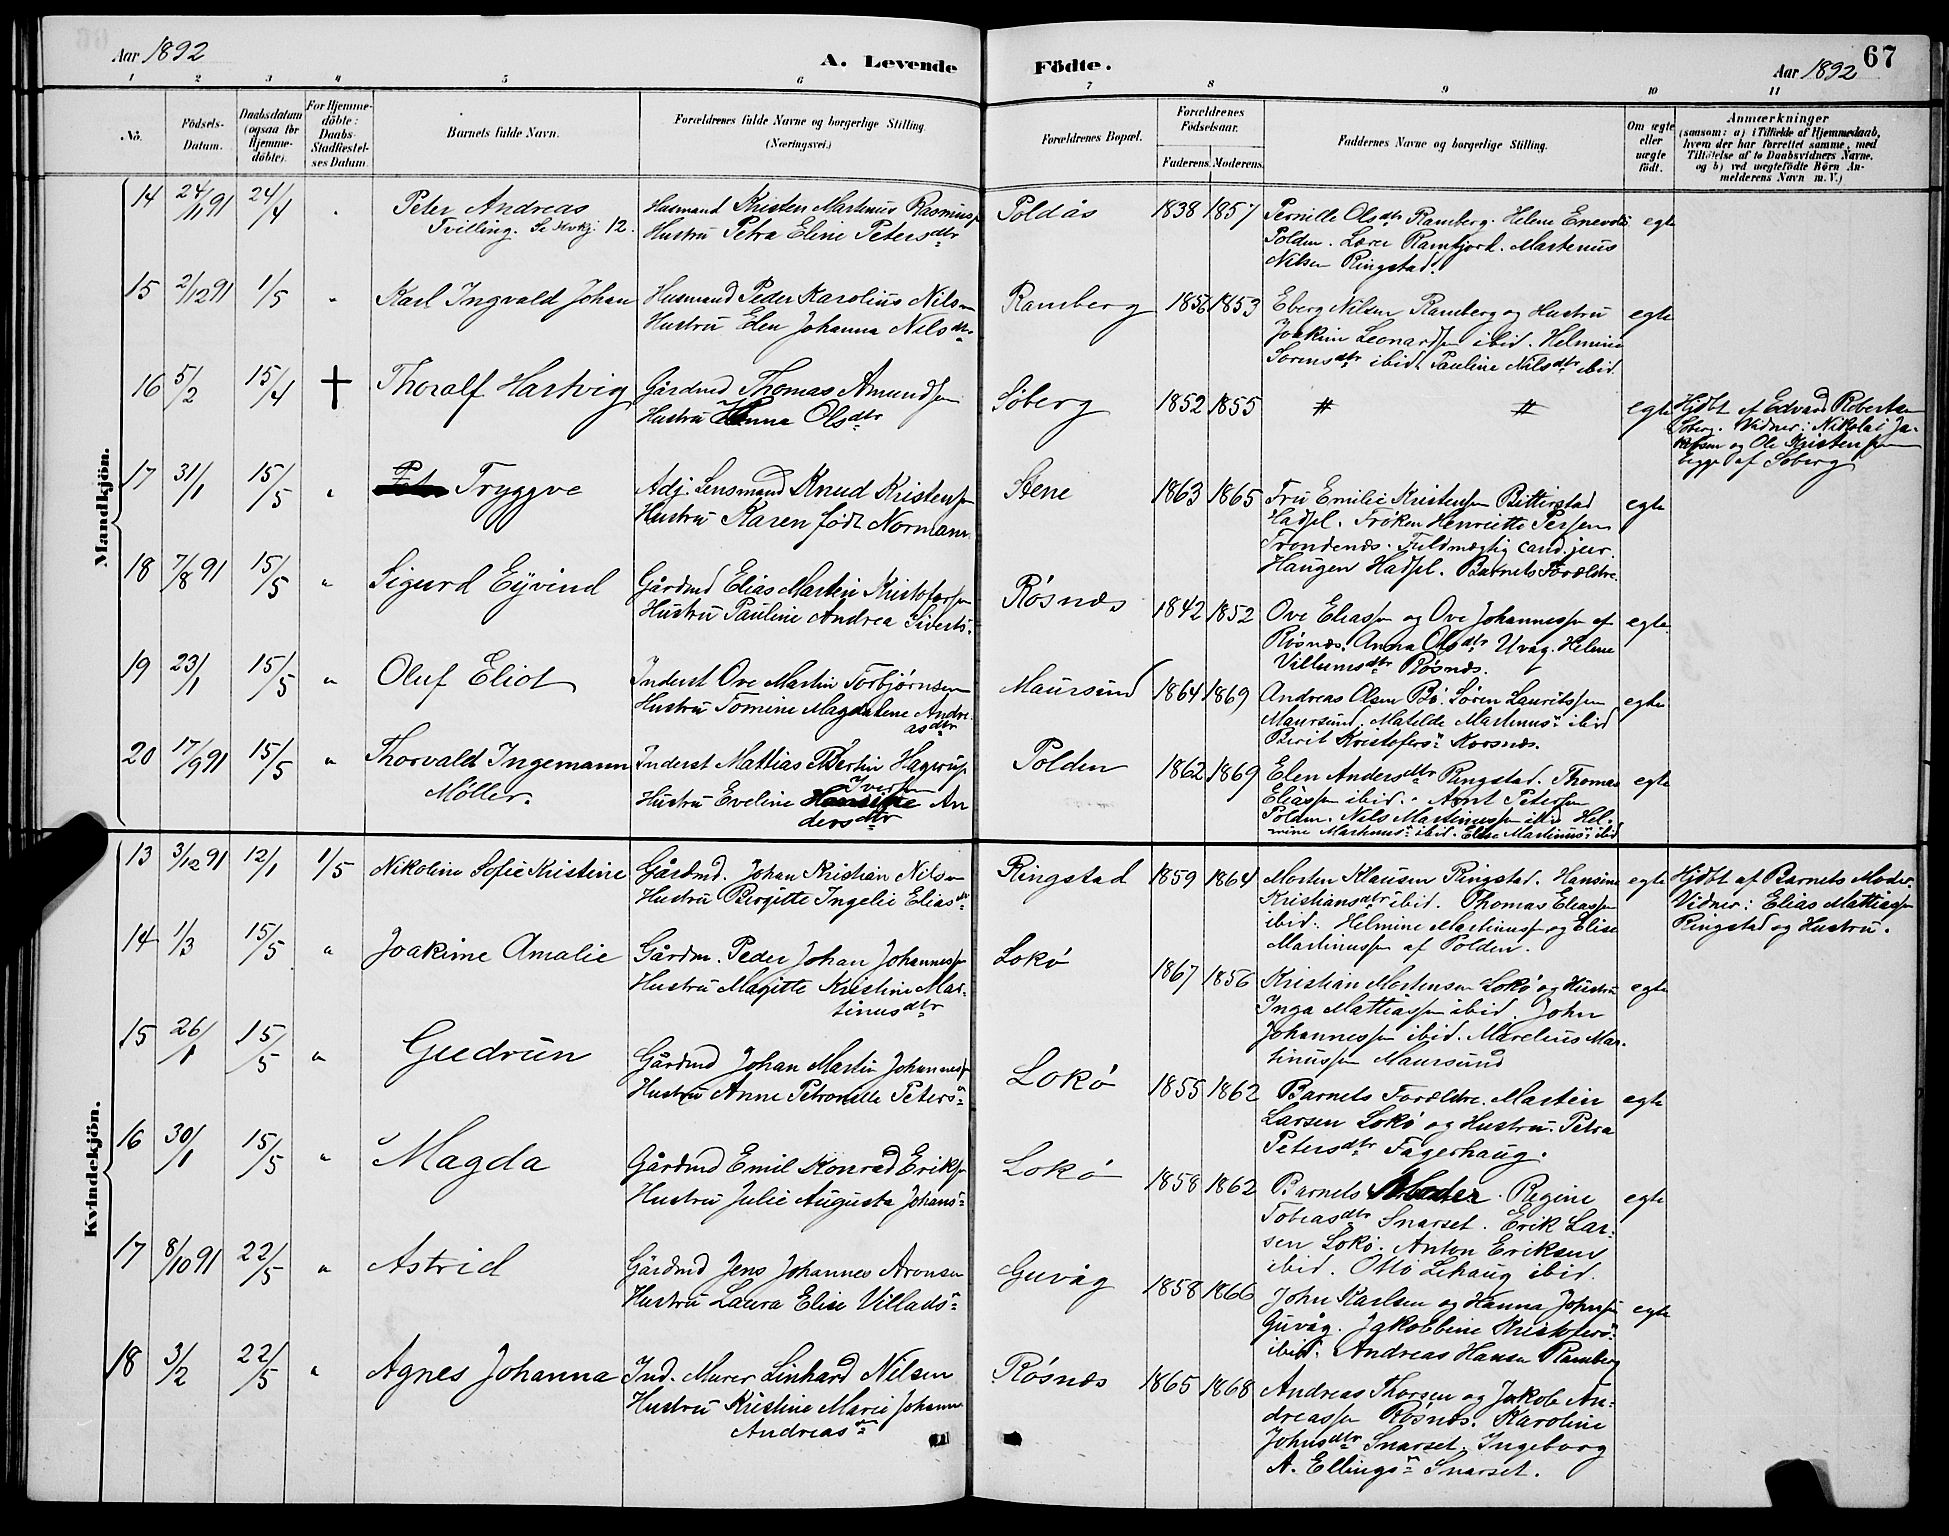 Aar 1892
A. Levende Födte.
Aar 1892
67
1 2 3 4 5 6 7 8 9 10 11
No.
Födsels-Datum.
Daabsdatum (ogsaa for Hjemme-döbte).
For Hjemme-döbte: Daabs-Stadfæstel-ses Datum.
Barnets fulde Navn.
Forældrenes fulde Navne og borgerlige Stilling. (Næringsvei.)
Forældrenes Bopæl.
Forældrenes Födselsaar.
Faderens. Moderens.
Faddernes Navne og borgerlige Stilling.
Om ægte eller uægte födt.
Anmærkninger
(saasom: a) i Tilfælde af Hjemmedaab, hvem der har forrettet samme, med Tilföielse af to Daabsvidners Navne, og b) ved uægtefödte Börn An-melderens Navn m. V.)
Mandkjön.
14 24/11 91 24/4 " Peter Andreas Husmand Kristen Martinus Rasmuss Poldås 1838 1857 Pernille Olsdtr Ramberg. Helene Enevolds egte
Tvilling. Se Kvkj. 12. Hustru Petra Elene Petersdtr Polden. Lærer Ramfjord. Martenus
Nilsen Ringstad.
15 2/12 91 1/5 " Karl Ingvald Johan Husmand Peder Karolius Nilsen Ramberg 1856 1853 Eberg Nilsen Ramberg og Hustru egte
Hustru Elen Johanna Nilsdtr Joakim Leonardsen ibid. Helmine
Sørensdtr ibid. Pauline Nilsdtr ibid
16 5/2 15/4 † Thoralf Hartvig Gårdmd Thomas Amundsen Soberg 1852 1855 # # egte Hjdbt af Edvard Robertsen
Hustru Hanna Olsdtr Soberg. Vidner: Nikolai Ja-
kobsen og Ole Kristensen
begge af Soberg
17 31/1 15/5 " Tryggve Adj. Lensmand Knud Kristensen Stene 1863 1865 Fru Emilie Kristensen Bitterstad egte
Hustru Karen født Normann Hadsel. Frøken Henriette
Trondenæs. Fuldmægtig cand. jur.
Haugen Hadsel. Barnets Forældre.
18 7/8 91 15/5 " Sigurd Eyvind Gårdmd Elias Martin Kristofersen Røsnæs 1842 1852 Ove Eliassen og Ove Johannessen af egte
Hustru Pauline Andrea Siverts Røsnæs. Anna Olsdtr Uvåg. Helene
Villumsdtr Røsnæs.
19 23/1 15/5 " Oluf Eliot Inderst Ove Martin Torbjørnsen Maursund 1864 1869 Andreas Olsen Bø. Søren Lauritssen egte
Hustru Tomine Magdalene Andre- Maursund. Matilde Martinus ibid
asdtr Berit Kristofers Korsnæs.
20 17/9 91 15/5 " Thorvald Ingemann Inderst Mattias Bertin Hagerup Polden 1862 1869 Elen Andersdtr Ringstad. Thomas egte
Møller. Iversen Eliassen ibid. Arnt Petersen
Hustru Eveline An Polden. Nils Martinussen ibid Hel-
dersdtr mine Martinus ibid. Elise Martinus ibid
Kvindekjön.
13 3/12 91 12/1 1/5 Nikoline Sofie Kristine Gårdmd. Johan Kristian Nilsen Ringstad 1859 1864 Morten Klausen Ringstad. Hansine egte Hjdbt af Barnets Moder.
Hustru Birgitte Ingelie Elias Kristiansdtr ibid. Thomas Eliassen Vidner: Elias Mattiassen
ibid. Helmine Martinuss og Elise Ringstad og Hustru.
Martinussen af Polden.
14 1/3 15/5 " Joakime Amalie Gårdm. Peder Johan Johannessen Lokø 1867 1856 Kristian Mortensen Lokø og Hustru egte
Hustru Magitte Kristine Mar- Inga Mattiassen ibid. John
tinusdtr Johannessen ibid. Marelius Mar-
tinussen Maursund
15 26/1 15/5 " Gudrun Gårdmd Johan Martin Johannes Lokø 1855 1862 Barnets Forældre. Martin egte
Hustru Anne Petronelle Peters Larsen Lokø og Hustru. Petra
Petersdtr Fagerhaug.
16 30/1 15/5 " Magda Gårdmd Emil Konrad Eriksen Lokø 1858 1862 Barnets Moder. Regine egte
Hustru Julie Augusta Johans Tobiasdtr Snarset. Erik Lar-
sen Lokø. Anton Eriksen
ibid. Otto Lehaug ibid.
17 8/10 91 22/5 " Astrid Gårdmd Jens Johannes Aronsen Guvåg 1858 1866 John Karlsen og Hanna Johnsen egte
Hustru Laura Elise Villads Guvåg. Jakobbine Kristofers
ibid. Andreas Hansen Ramberg
18 3/2 22/5 " Agnes Johanna Ind. Murer Linhard Nilsen Røsnæs 1865 1868 Andreas Thorsen og Jakob An-
Hustru Kristine Marie Johanne dreassen Røsnæs. Karoline
Andreas Johnsdtr Snarset. Ingeborg
A. Ellings Snarset.